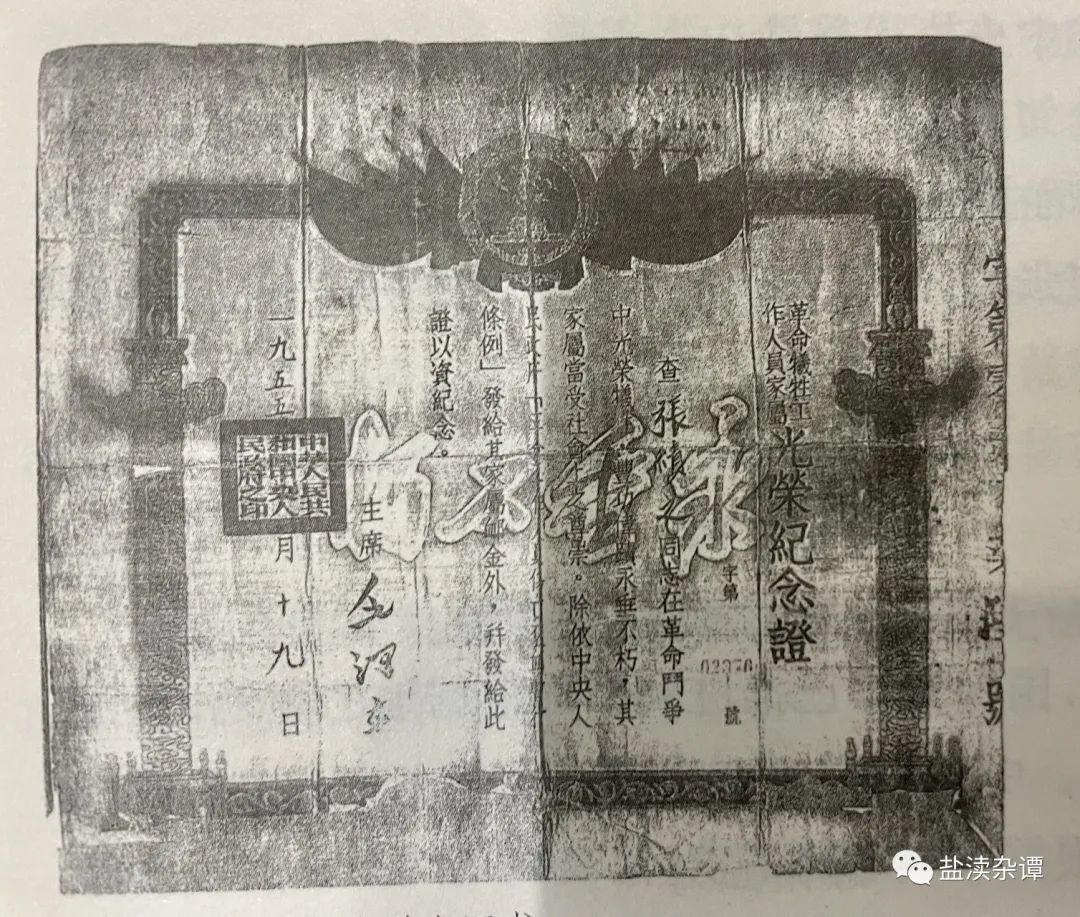 革命犧牲工
作人員家屬
光榮紀念證
字第
02376
號
查張綾之同志在革命鬥爭
中光榮犧牲,豐功偉績永垂不朽,其
家屬當受社會上之尊崇。除依中央人
民政府
條例」發給其家屬卹金外,并發給此
證以資紀念。
永垂不朽
主席
毛澤東
中華人民共
和國中央人
民政府之印
一九五五
月十九日
號
盐渎杂谭